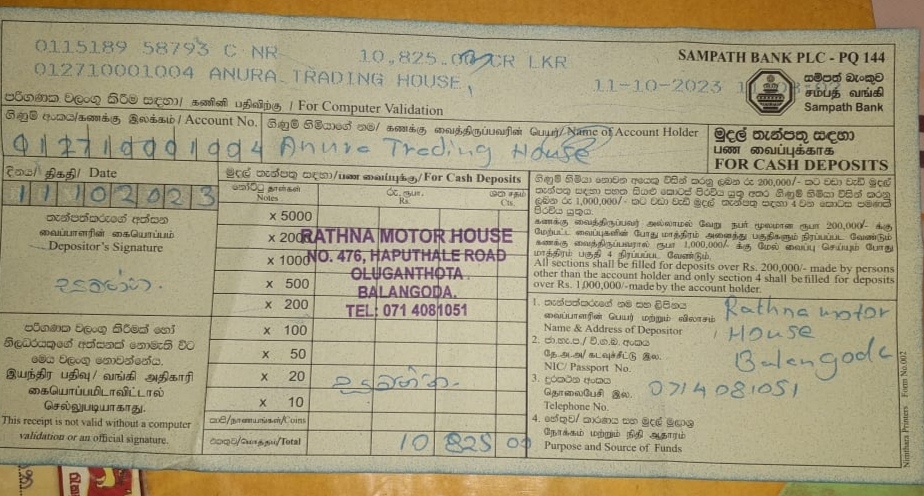 0115189 58793 C NR 10,825.00 CR LKR
012710001004 ANURA TRADING HOUSE,
11-10-2023
SAMPATH BANK PLC - PQ 144
සම්පත් බැංකුව
சம்பத் வங்கி
Sampath Bank
පරිගණක වලංගු කිරීම සඳහා/ கணினி பதிவிற்கு / For Computer Validation
ගිණුම් අංකය/கணக்கு இலக்கம்/ Account No.
012710001004
ගිණුම් හිමියාගේ නම/ கணக்கு வைத்திருப்பவரின் பெயர்/ Name of Account Holder
Anura Trading House
මුදල් තැන්පතු සඳහා
பண வைப்புக்காக
FOR CASH DEPOSITS
දිනය/ திகதி/ Date
11102023
තැන්පත්කරුගේ අත්සන
வைப்பாளரின் கையொப்பம்
Depositor's Signature
පරිගණක වලංගු කිරීමක් හෝ
නිලධරයකුගේ අත්සනක් නොමැති විට
මෙය වලංගු නොවන්නේය.
இயந்திர பதிவு/ வங்கி அதிகாரி
கையொப்பமிடாவிட்டால்
செல்லுபடியாகாது.
This receipt is not valid without a computer
validation or an official signature.
මුදල් තැන්පතු සඳහා/பண வைப்புக்கு/For Cash Deposits
නෝට්ටු தாள்கள்
Notes
රු. ரூபா.
Rs.
ශත சதம்
Cts.
x 5000
x 2000
x 1000
x 500
x 200
x 100
x 50
x 20
x 10
කාසි/நாணயங்கள்/Coins
එකතුව/மொத்தம்/Total
10 825 00
RATHNA MOTOR HOUSE
NO. 476, HAPUTHALE ROAD
OLUGANTHOTA.
BALANGODA.
TEL: 071 4081051
ගිණුම් හිමියා නොවන අයෙකු විසින් කරනු ලබන රු 200,000/- කට වඩා වැඩි මුදල්
තැන්පතු සඳහා පහත සියළු කොටස් පිරවිය යුතු අතර ගිණුම් හිමියා විසින් කරනු
ලබන රු 1,000,000/- කට වඩා වැඩි මුදල් තැන්පතු සඳහා 4 වන කොටස පමණක්
පිරවිය යුතුය.
கணக்கு வைத்திருப்பவர் அல்லாமல் வேறு நபர் மூலமான ரூபா 200,000/- க்கு
மேற்பட்ட வைப்புகளின் போது மாத்திரம் அனைத்து பகுதிகளும் நிரப்பப்பட வேண்டும்
கணக்கு வைத்திருப்பவரால் ரூபா 1,000,000/- க்கு மேல் வைப்பு செய்யும் போது
மாத்திரம் பகுதி 4 நிரப்பப்பட வேண்டும்.
All sections shall be filled for deposits over Rs. 200,000/- made by persons
other than the account holder and only section 4 shall be filled for deposits
over Rs. 1,000,000/- made by the account holder.
1. තැන්පත්කරුගේ නම සහ ලිපිනය
வைப்பாளரின் பெயர் மற்றும் விலாசம்
Name & Address of Depositor
Rathna motor
House
Balangoda
2. ජා.හැ.ප./ වි.ග.බ. අංකය
தே.அ.அ/ கடவுச்சீட்டு இல.
NIC/ Passport No.
3. දුරකථන අංකය
தொலைபேசி இல.
Telephone No.
0714081051
4. හේතුව/ කාරණය සහ මුදල් මූලාශ්‍ර
நோக்கம் மற்றும் நிதி ஆதாரம்
Purpose and Source of Funds
Nimthara Printers Form No.002